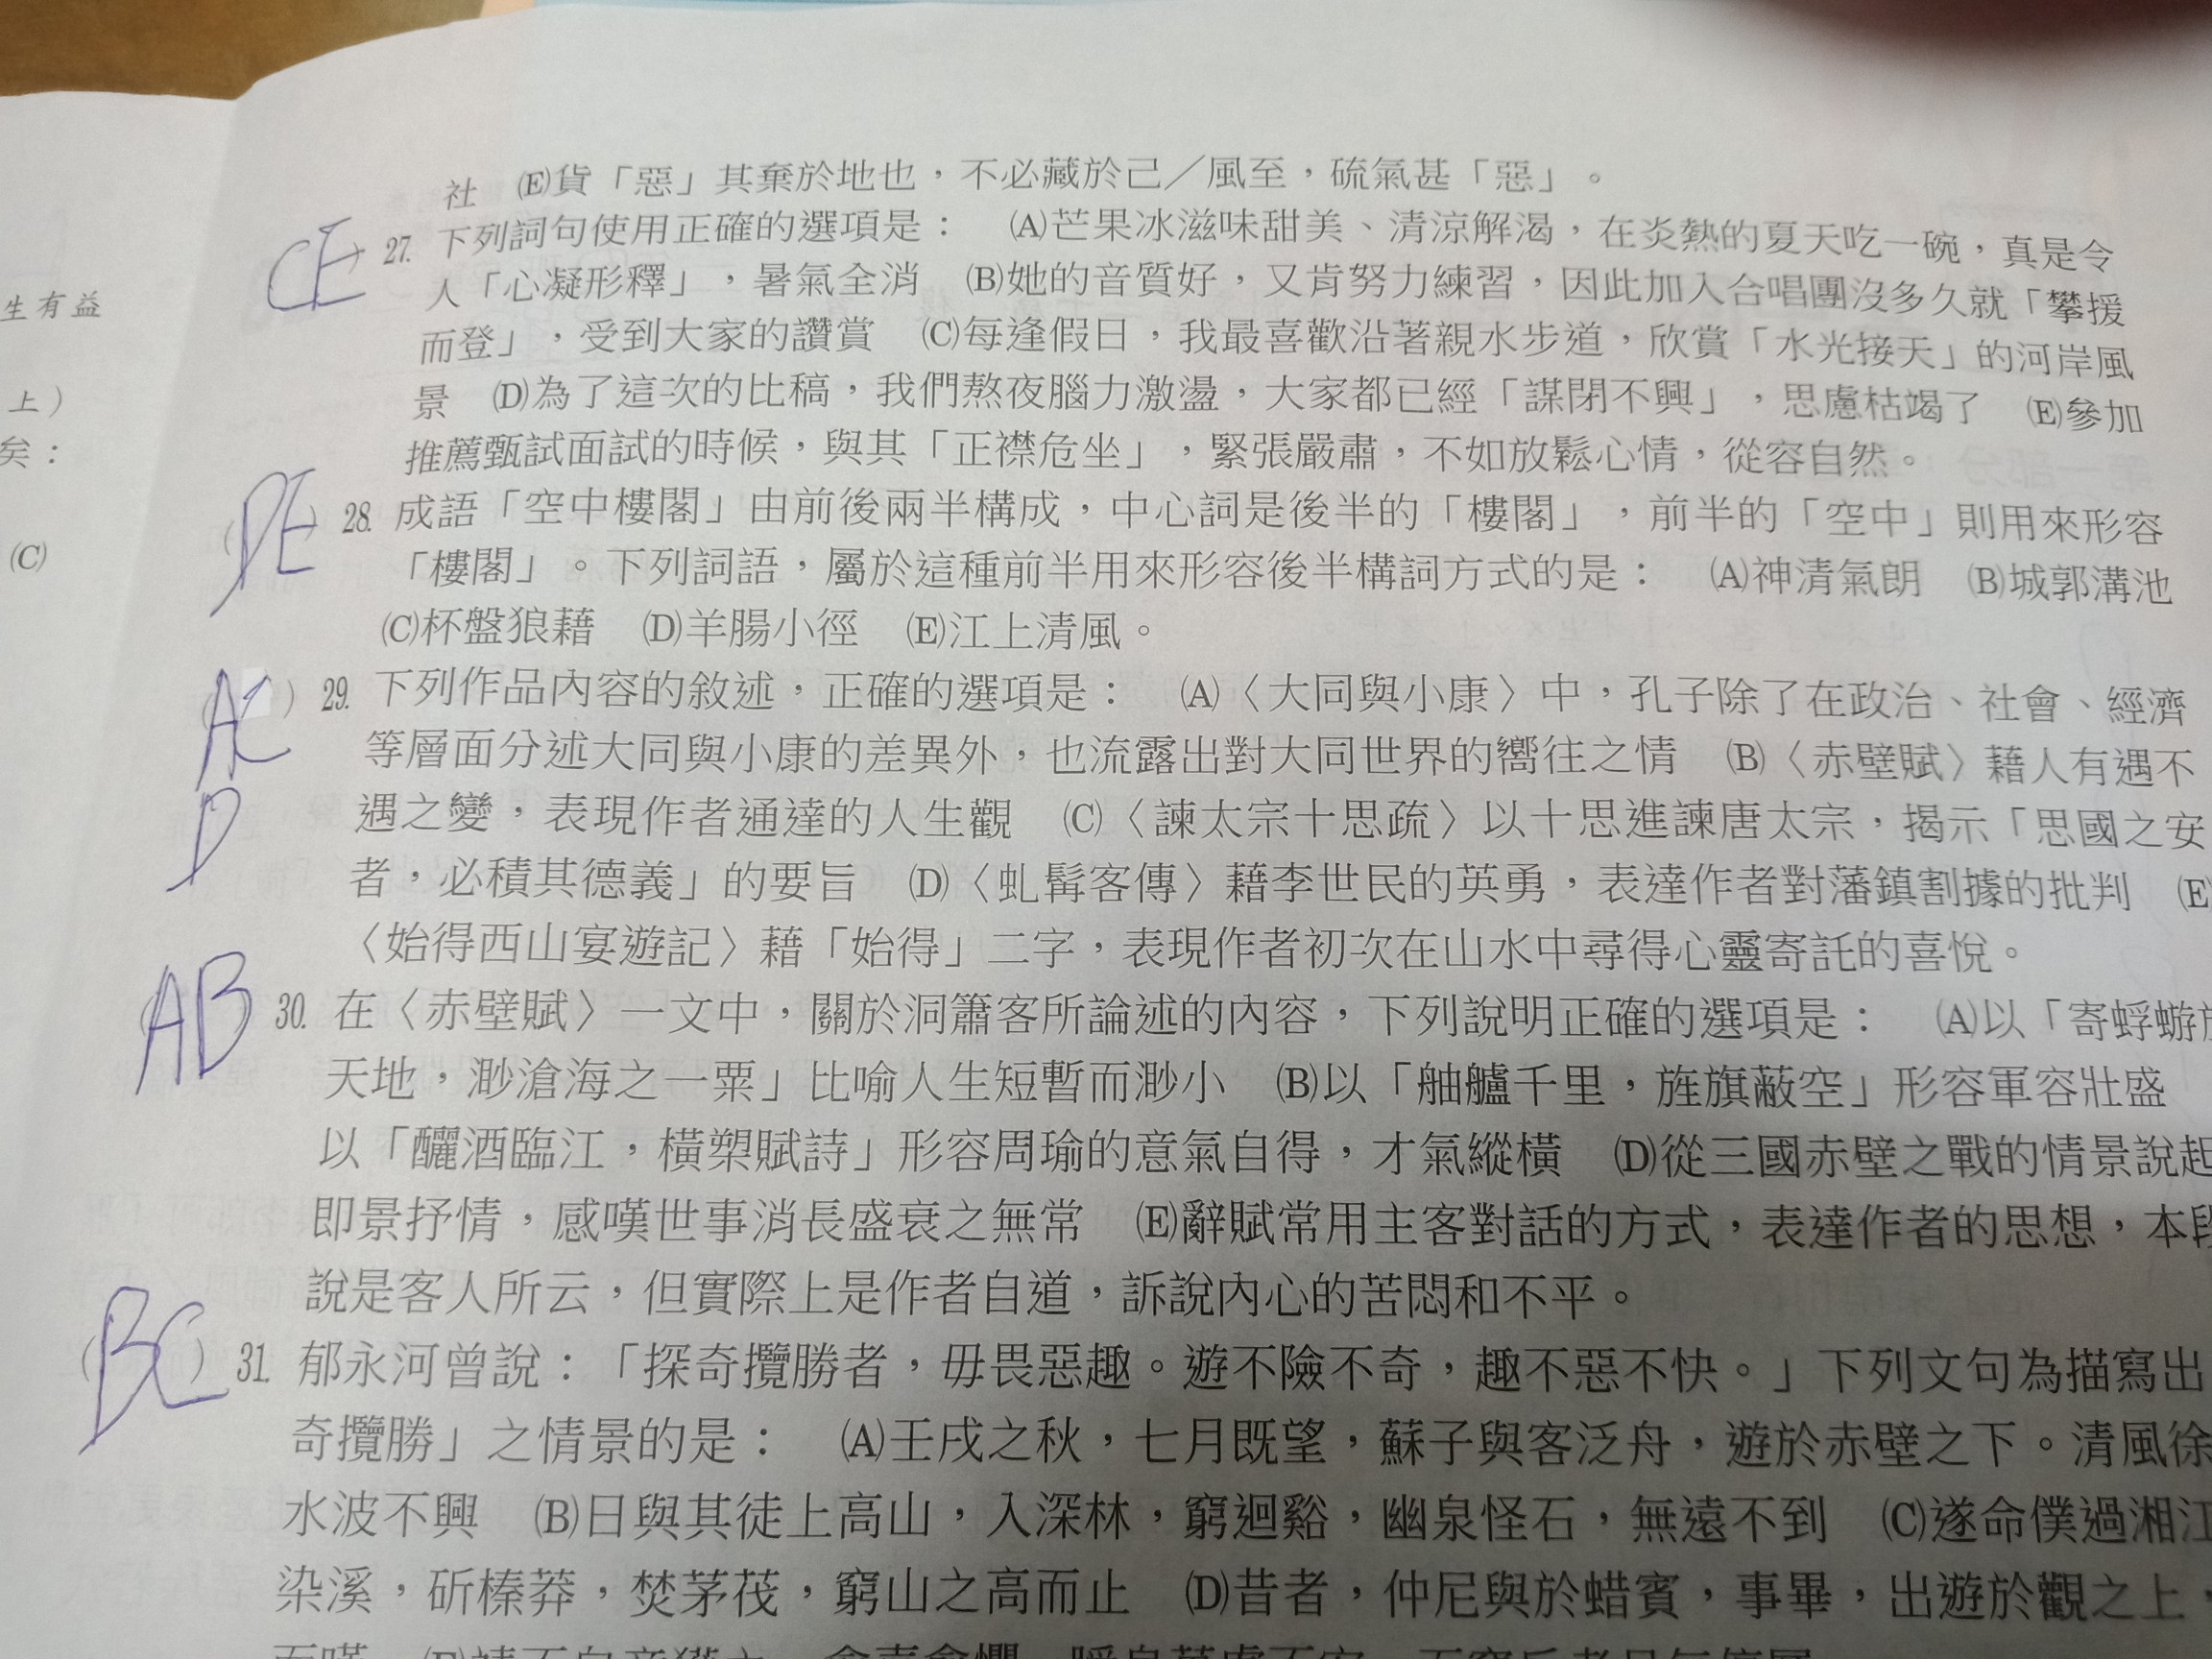 社　(E)貨「惡」其棄於地也，不必藏於己／風至，硫氣甚「惡」。
CE 27. 下列詞句使用正確的選項是：　(A)芒果冰滋味甜美、清涼解渴，在炎熱的夏天吃一碗，真是令
人「心凝形釋」，暑氣全消　(B)她的音質好，又肯努力練習，因此加入合唱團沒多久就「攀援
而登」，受到大家的讚賞　(C)每逢假日，我最喜歡沿著親水步道，欣賞「水光接天」的河岸風
景　(D)為了這次的比稿，我們熬夜腦力激盪，大家都已經「謀閉不興」，思慮枯竭了　(E)參加
推薦甄試面試的時候，與其「正襟危坐」，緊張嚴肅，不如放鬆心情，從容自然。
(DE) 28. 成語「空中樓閣」由前後兩半構成，中心詞是後半的「樓閣」，前半的「空中」則用來形容
「樓閣」。下列詞語，屬於這種前半用來形容後半構詞方式的是：　(A)神清氣朗　(B)城郭溝池
(C)杯盤狼藉　(D)羊腸小徑　(E)江上清風。
(AC) 29. 下列作品內容的敘述，正確的選項是：　(A)〈大同與小康〉中，孔子除了在政治、社會、經濟
等層面分述大同與小康的差異外，也流露出對大同世界的嚮往之情　(B)〈赤壁賦〉藉人有遇不
D
遇之變，表現作者通達的人生觀　(C)〈諫太宗十思疏〉以十思進諫唐太宗，揭示「思國之安
者，必積其德義」的要旨　(D)〈虬髯客傳〉藉李世民的英勇，表達作者對藩鎮割據的批判　(E)
〈始得西山宴遊記〉藉「始得」二字，表現作者初次在山水中尋得心靈寄託的喜悅。
AB 30. 在〈赤壁賦〉一文中，關於洞簫客所論述的內容，下列說明正確的選項是：　(A)以「寄蜉蝣
天地，渺滄海之一粟」比喻人生短暫而渺小　(B)以「舳艫千里，旌旗蔽空」形容軍容壯盛
以「釃酒臨江，橫槊賦詩」形容周瑜的意氣自得，才氣縱橫　(D)從三國赤壁之戰的情景說起
即景抒情，感嘆世事消長盛衰之無常　(E)辭賦常用主客對話的方式，表達作者的思想，本段
說是客人所云，但實際上是作者自道，訴說內心的苦悶和不平。
(BC) 31. 郁永河曾說：「探奇攬勝者，毋畏惡趣。遊不險不奇，趣不惡不快。」下列文句為描寫出
奇攬勝」之情景的是：　(A)壬戌之秋，七月既望，蘇子與客泛舟，遊於赤壁之下。清風徐
水波不興　(B)日與其徒上高山，入深林，窮迴谿，幽泉怪石，無遠不到　(C)遂命僕過湘江
染溪，斫榛莽，焚茅茷，窮山之高而止　(D)昔者，仲尼與於蜡賓，事畢，出遊於觀之上，
生有益
上）
矣：
(C)